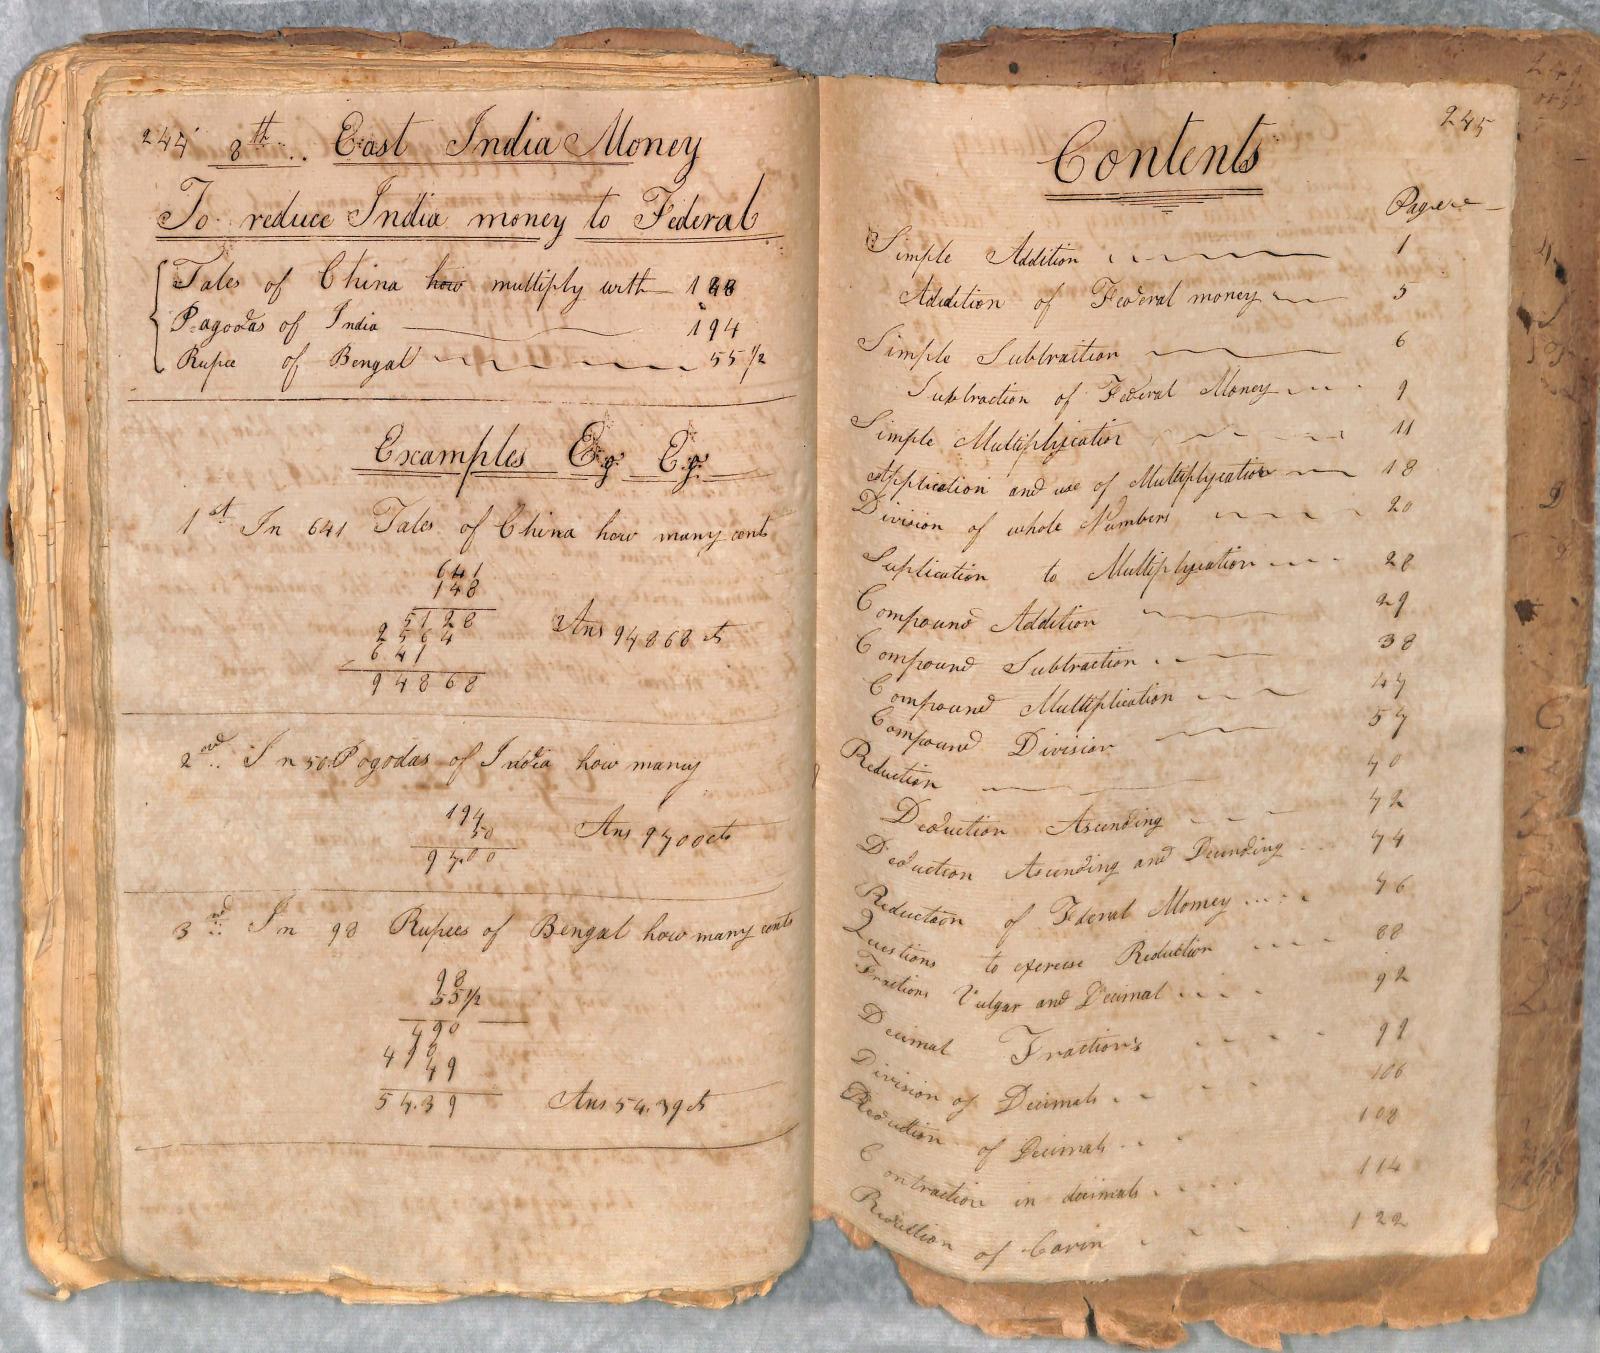 244 8th .. East India Money
To reduce India money to Federal
Tales of China how multiply with 148
Pagodas of India 194
Rupee of Bengal 55 1/2
Examples Eg Eg.
1st In 641 Tales of China how many cents
641
148
5128
2564
641
94868
Ans 94868 cts
2nd .. In 50 Pogodas of India how many
194
50
97.00
Ans 9700 cts
3nd In 98 Rupees of Bengal how many cents
98
55 1/2
490
490
49
54.39
Ans 54.39 cts
245
Contents
Simple Addition 1
Addition of Federal money 5
Simple Subtraition 6
Subtraction of Federal Money 9
Simple Multiplycation 11
Application and use of Multiplycation 18
Division of whole Numbers 20
Suplication to Multiplycation 28
Compound Addition 29
Compound Subtraction 38
Compound Multiplication 47
Compound Division 57
Reduction 70
Deduction Ascending 72
Deduction Ascending and Decending 74
Reduction of Federal Momey 76
Questions to exercise Reduction 88
Fractions Vulgar and Decimal 92
Decimal Fractions 99
Division of Decimals 106
Reduction of Decimals 108
Contraction in decimals 114
Reduction of 122